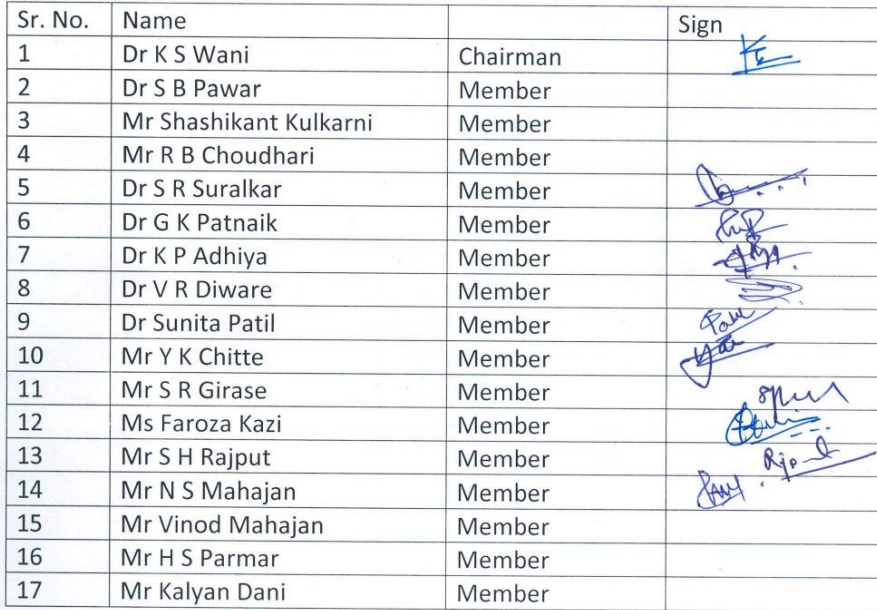 Sr. No. Name Sign
1 Dr K S Wani Chairman
2 Dr S B Pawar Member
3 Mr Shashikant Kulkarni Member
4 Mr R B Choudhari Member
5 Dr S R Suralkar Member
6 Dr G K Patnaik Member
7 Dr K P Adhiya Member
8 Dr V R Diware Member
9 Dr Sunita Patil Member
10 Mr Y K Chitte Member
11 Mr S R Girase Member
12 Ms Faroza Kazi Member
13 Mr S H Rajput Member
14 Mr N S Mahajan Member
15 Mr Vinod Mahajan Member
16 Mr H S Parmar Member
17 Mr Kalyan Dani Member